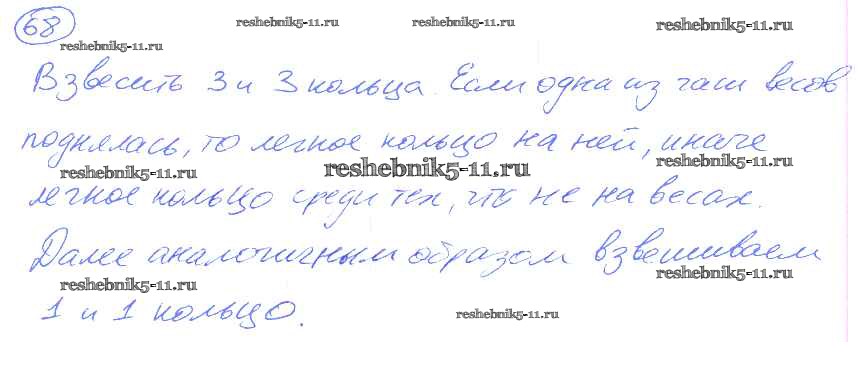 68 reshebnik5-11.ru reshebnik5-11.ru reshebnik5-11.ru
reshebnik5-11.ru
Взвесить 3 и 3 кольца. Если одна из чаш весов
поднялась, то легкое кольцо на ней, иначе
reshebnik5-11.ru reshebnik5-11.ru reshebnik5-11.ru
легкое кольцо среди тех, что не на весах.
Далее аналогичным образом взвешиваем
reshebnik5-11.ru reshebnik5-11.ru
1 и 1 кольцо.
reshebnik5-11.ru